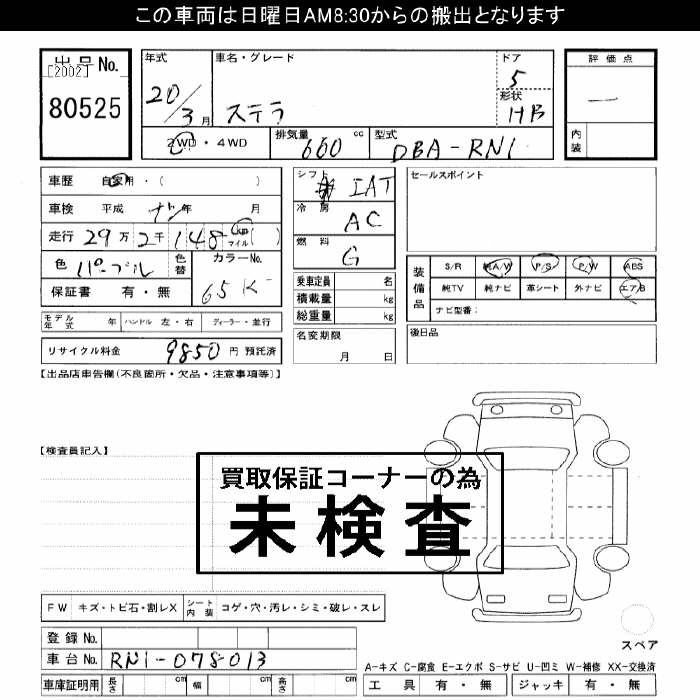 この車両は日曜日AM8:30からの搬出となります
出品No. [2002] 80525
年式 20/3月 車名・グレード ステラ ドア 5 形状 HB
2WD・4WD 排気量 660 cc 型式 DBA-RN1
評価点 —
内装
車歴 自家用・( )
車検 平成 ナシ年 月
走行 29万2千148 km マイル ( )
色 パープル 色替 カラーNo. 65K
保証書 有・無
シフト IAT
冷房 AC
燃料 G
乗車定員 名
積載量 kg
総重量 kg
名変期限 月 日
セールスポイント
装備品 S/R 純A/W P/S P/W ABS
純TV 純ナビ 革シート 外ナビ エアB
ナビ型番:
後日品
モデル年式 年 ハンドル 左・右 ディーラー・並行
リサイクル料金 9850 円 預託済
【出品店車告欄(不良箇所・欠品・注意事項等)】
【検査員記入】
買取保証コーナーの為
未検査
FW キズ・トビ石・割レX シート内装 コゲ・穴・汚レ・シミ・破レ・スレ
登録No.
車台No. RN1-078013
車庫証明用 長さ cm 幅 cm 高さ cm
スペア
A-キズ C-腐食 E-エクボ S-サビ U-凹ミ W-補修 XX-交換済
工具 有・無 ジャッキ 有・無